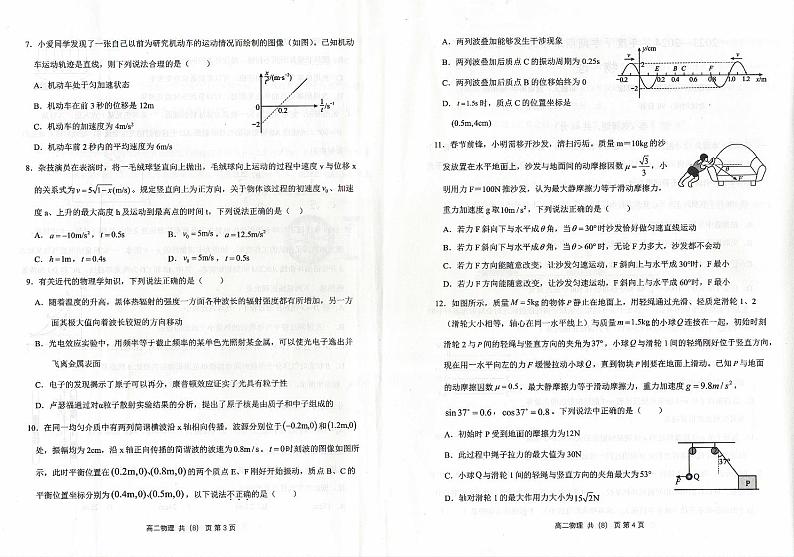 7. 小爱同学发现了一张自己以前为研究机动车的运动情况而绘制的图像（如图）。已知机动
车运动轨迹是直线，则下列说法合理的是（　）
A. 机动车处于匀加速状态
B. 机动车在前 3 秒的位移是 12m
C. 机动车的加速度为 4m/s²
D. 机动车前 2 秒内的平均速度为 6m/s
x/t/(m·s⁻¹)
0
0.2
1/t/s
−2
8. 杂技演员在表演时，将一毛绒球竖直向上抛出，毛绒球向上运动的过程中速度 v 与位移 x
的关系式为 v = 5√(1−x) (m/s)。规定竖直向上为正方向，关于物体该过程的初速度 v₀、加速
度 a、上升的最大高度 h 及运动到最高点的时间 t，下列说法正确的是（　）
A. a = −10m/s²，t = 0.5s　B. v₀ = 5m/s，a = 12.5m/s²
C. h = 1m，t = 0.4s　D. v₀ = 5m/s，t = 0.5s
9. 有关近代的物理学知识，下列说法正确的是（　）
A. 随着温度的升高，黑体热辐射的强度一方面各种波长的辐射强度都有所增加，另一方
面其极大值向着波长较短的方向移动
B. 光电效应实验中，用频率等于截止频率的某单色光照射某金属，可以使光电子逸出并
飞离金属表面
C. 电子的发现揭示了原子可以再分，康普顿效应证实了光具有粒子性
D. 卢瑟福通过对α粒子散射实验结果的分析，提出了原子核是由质子和中子组成的
10. 在同一均匀介质中有两列简谐横波沿 x 轴相向传播，波源分别位于(−0.2m,0)和(1.2m,0)
处，振幅均为 2cm，沿 x 轴正向传播的简谐波的波速为 0.8m/s。t = 0时刻波的图像如图所
示，此时平衡位置在(0.2m,0)、(0.8m,0)的两个质点 E、F 刚好开始振动，质点 B、C 的
平衡位置坐标分别为(0.4m,0)、(0.5m,0)，以下说法不正确的是（　）
高二物理　共（8）页 第 3 页
A. 两列波叠加能够发生干涉现象
B. 两列波叠加后质点 C 的振动周期为 0.25s
C. 两列波叠加后质点 B 的位移始终为 0
D. t = 1.5s时，质点 C 的位置坐标是
(0.5m,4cm)
y/cm
v
v
2
E B C F
−0.2 0 0.2 0.4 0.8 1.0 1.2 x/m
−2
11. 春节前锋，小明需移开沙发，清扫污垢，质量 m＝10kg 的沙
发放置在水平地面上，沙发与地面间的动摩擦因数 μ = √3/3，小
明用力 F＝100N 推沙发，认为最大静摩擦力等于滑动摩擦力，
重力加速度 g 取10m/s²，下列说法正确的是（　）
A. 若力 F 斜向下与水平成 θ 角，当 θ = 30°时沙发恰好做匀速直线运动
B. 若力 F 斜向下与水平成 θ 角，当 θ > 60°时，无论 F 力多大，沙发都不会动
C. 若力 F 方向能随意改变，让沙发匀速运动，F 斜向上与水平成 30°时，F 最小
D. 若力 F 方向能随意改变，让沙发匀速运动，F 斜向上与水平成 60°时，F 最小
θ
F
12. 如图所示，质量 M = 5kg 的物体 P 静止在地面上，用轻绳通过光滑、轻质定滑轮 1、2
（滑轮大小相等，轴心在同一水平线上）与质量 m = 1.5kg 的小球 Q 连接在一起，初始时刻
滑轮 2 与 P 间的轻绳与竖直方向的夹角为37°，小球 Q 与滑轮 1 间的轻绳刚好位于竖直方向，
现在用一水平向左的力 F 缓慢拉动小球 Q，直到物块 P 刚要在地面上滑动。已知 P 与地面
的动摩擦因数 μ = 0.5，最大静摩擦力等于滑动摩擦力，重力加速度 g = 9.8m/s²，
sin37° = 0.6，cos37° = 0.8。下列说法中正确的是（　）
A. 初始时 P 受到地面的摩擦力为12N
B. 此过程中绳子拉力的最大值为 30N
C. 小球 Q 与滑轮 1 间的轻绳与竖直方向的夹角最大为53°
D. 轴对滑轮 1 的最大作用力大小为15√2N
37°
F
Q
P
高二物理　共（8）页 第 4 页